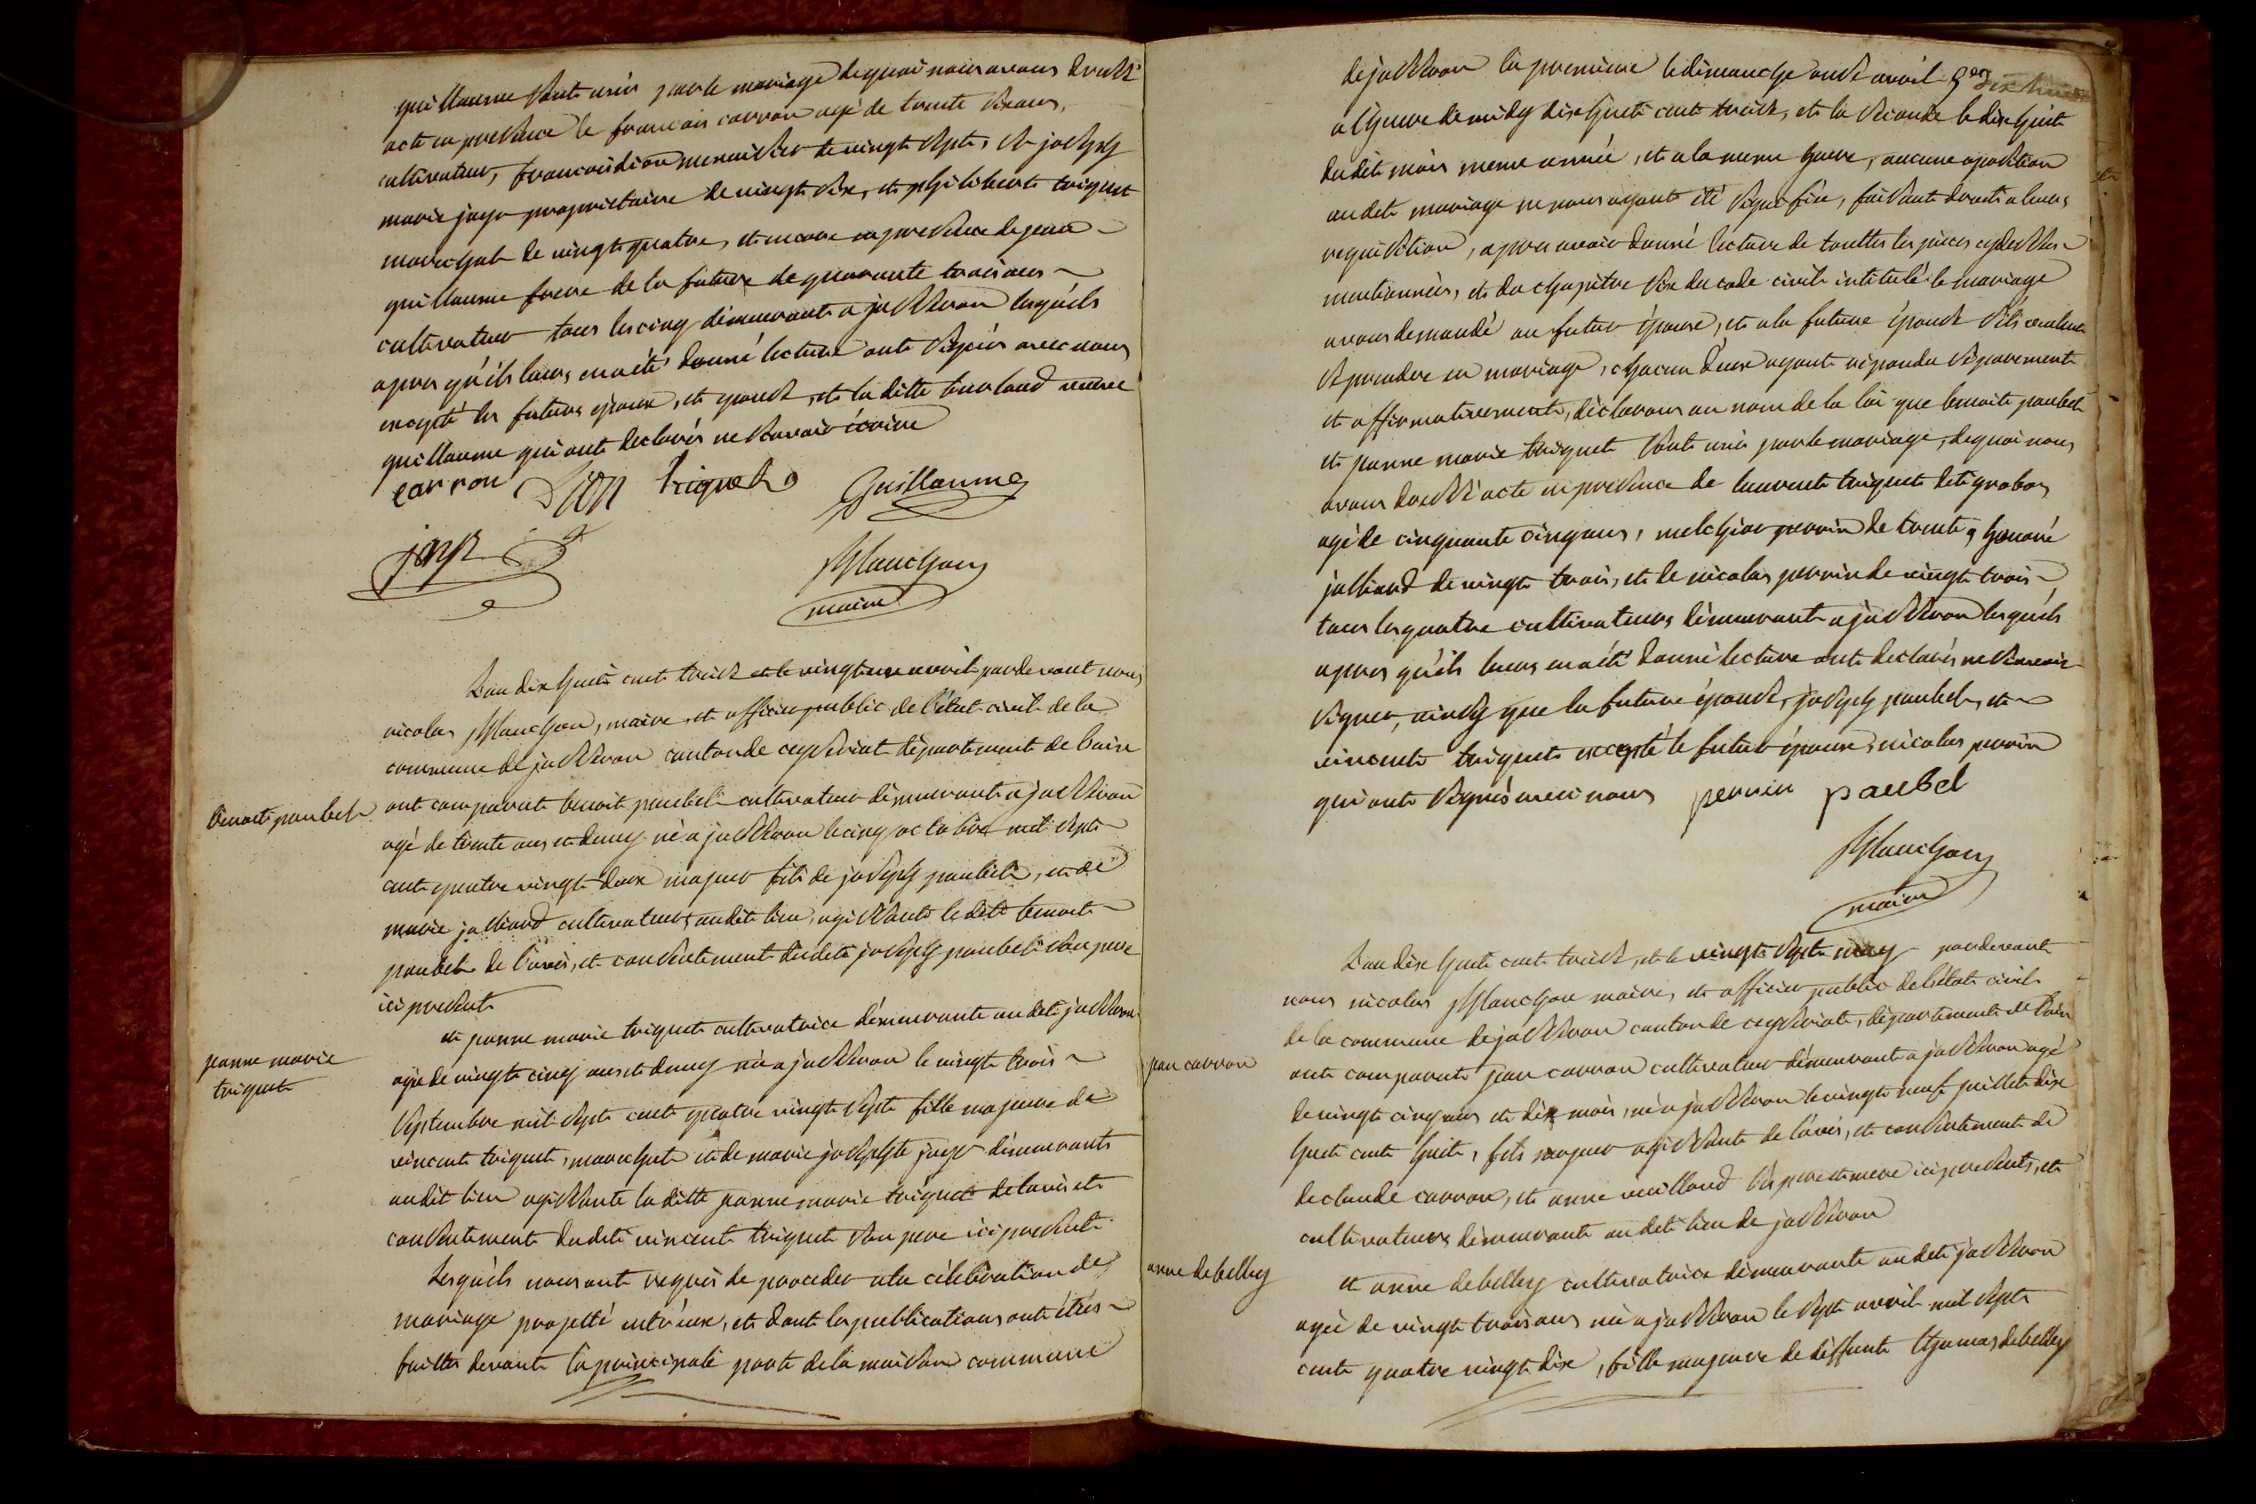 guillaume sont unis par le mariage de quoi nous avons dressé
acte en presence de francois carron agé de trente six ans,
cultivateur, francois dion menuisier de vingt sept, et joseph
marie jayr proprietaire de vingt six, et philibert triquet
marechal de vingt quatre, et encore en presence de jean
guillaume frere de la future de quarante trois ans
cultivateur tous les cinq demeurants a jasseron lesquels
apres qu'ils leurs en a été donné lecture ont signés avec nous
excepté les futurs epoux, et epouse, et la ditte veuve
guillaume qui ont declarés ne savoir écrire
carron Dion triquet Guillaume
jayr
Planchon
maire
L'an dix huit cent treize et le vingt un avril pardevant nous
nicolas Planchon, maire et officier public de l'état civil de la
commune de jasseron canton de ceyseriat département de l'ain
benoit paubel
ont comparut benoit paubel cultivateur démeurant a jasseron
agé de trente ans et demy né a jasseron le cinq octobre mil sept
cent quatre vingt deux majeur fils de joseph paubel, et de
marie julliard cultivateurs audit lieu, agissant le dit benoit
paubel de l'avis, et consentement dudit joseph paubel son pere
ici present
jeanne marie
triquet
et jeanne marie triquet cultivatrice démeurante au dit jasseron
agée de vingt cinq ans et demy née a jasseron le vingt trois
septembre mil sept cent quatre vingt sept fille majeure de
vincent triquet, marechal et de marie josephte jayr démeurants
audit lieu agissante la ditte jeanne marie triquet de l'avis et
consentement dudit vincent triquet son pere ici present
Lesquels nous ont requis de proceder a la célébration de
mariage projetté entr'eux, et dont les publications ont étés
faittes devant la principale porte de la maison commune
de jasseron la premiere le dimanche onze avril
a l'heure de midy dix huit cent treize, et la seconde le dix huit
du dit mois meme année, et a la meme heure, aucune oposition
au dit mariage ne nous ayant été signifiée, faisant droit a leurs
requisition, apres avoir donné lecture de touttes les pieces cydessus
mentionnées, et du chapitre six du code civil intitulé le mariage
avons demandé au futur époux, et a la future épouse s'ils veulent
se prendre en mariage, chacun d'eux ayant répondu séparement
et affirmativement, déclarons au nom de la loi que benoit paubel
et jeanne marie triquet sont unis par le mariage, de quoi nous
avons dressé acte en presence de laurent triquet dit grabos
agé de cinquante cinq ans, melchior perrin de trente, honoré
julliard de vingt trois, et de nicolas perrin de vingt trois
tous les quatre cultivateurs démeurant a jasseron lesquels
apres qu'ils leurs en a été donné lecture ont declarés ne savoir
signer, ainsy que la future épouse, joseph paubel, et
vincent triquet excepté le futur époux, nicolas perrin
qui ont signés avec nous perrin paubel
Planchon
maire
L'an dix huit cent treize, et le vingt sept may pardevant
nous nicolas Planchon maire, et officier public de l'état civil
de la commune de jasseron canton de ceyseriat, département de l'ain
jean carron
ont comparut jean carron cultivateur démeurant a jasseron agé
de vingt cinq ans et dix mois, né a jasseron le vingt neuf juillet dix
huit cent huit, fils majeur agissant de l'avis, et consentement de
declaude carron, et anne ses pere et mere ici presents, et
cultivateurs démeurants au dit lieu de jasseron
anne debelley
et anne debelley cultivatrice démeurante au dit jasseron
agée de vingt trois ans née a jasseron le sept avril mil sept
cent quatre vingt dix, fille majeure de diffunt thomas debelley